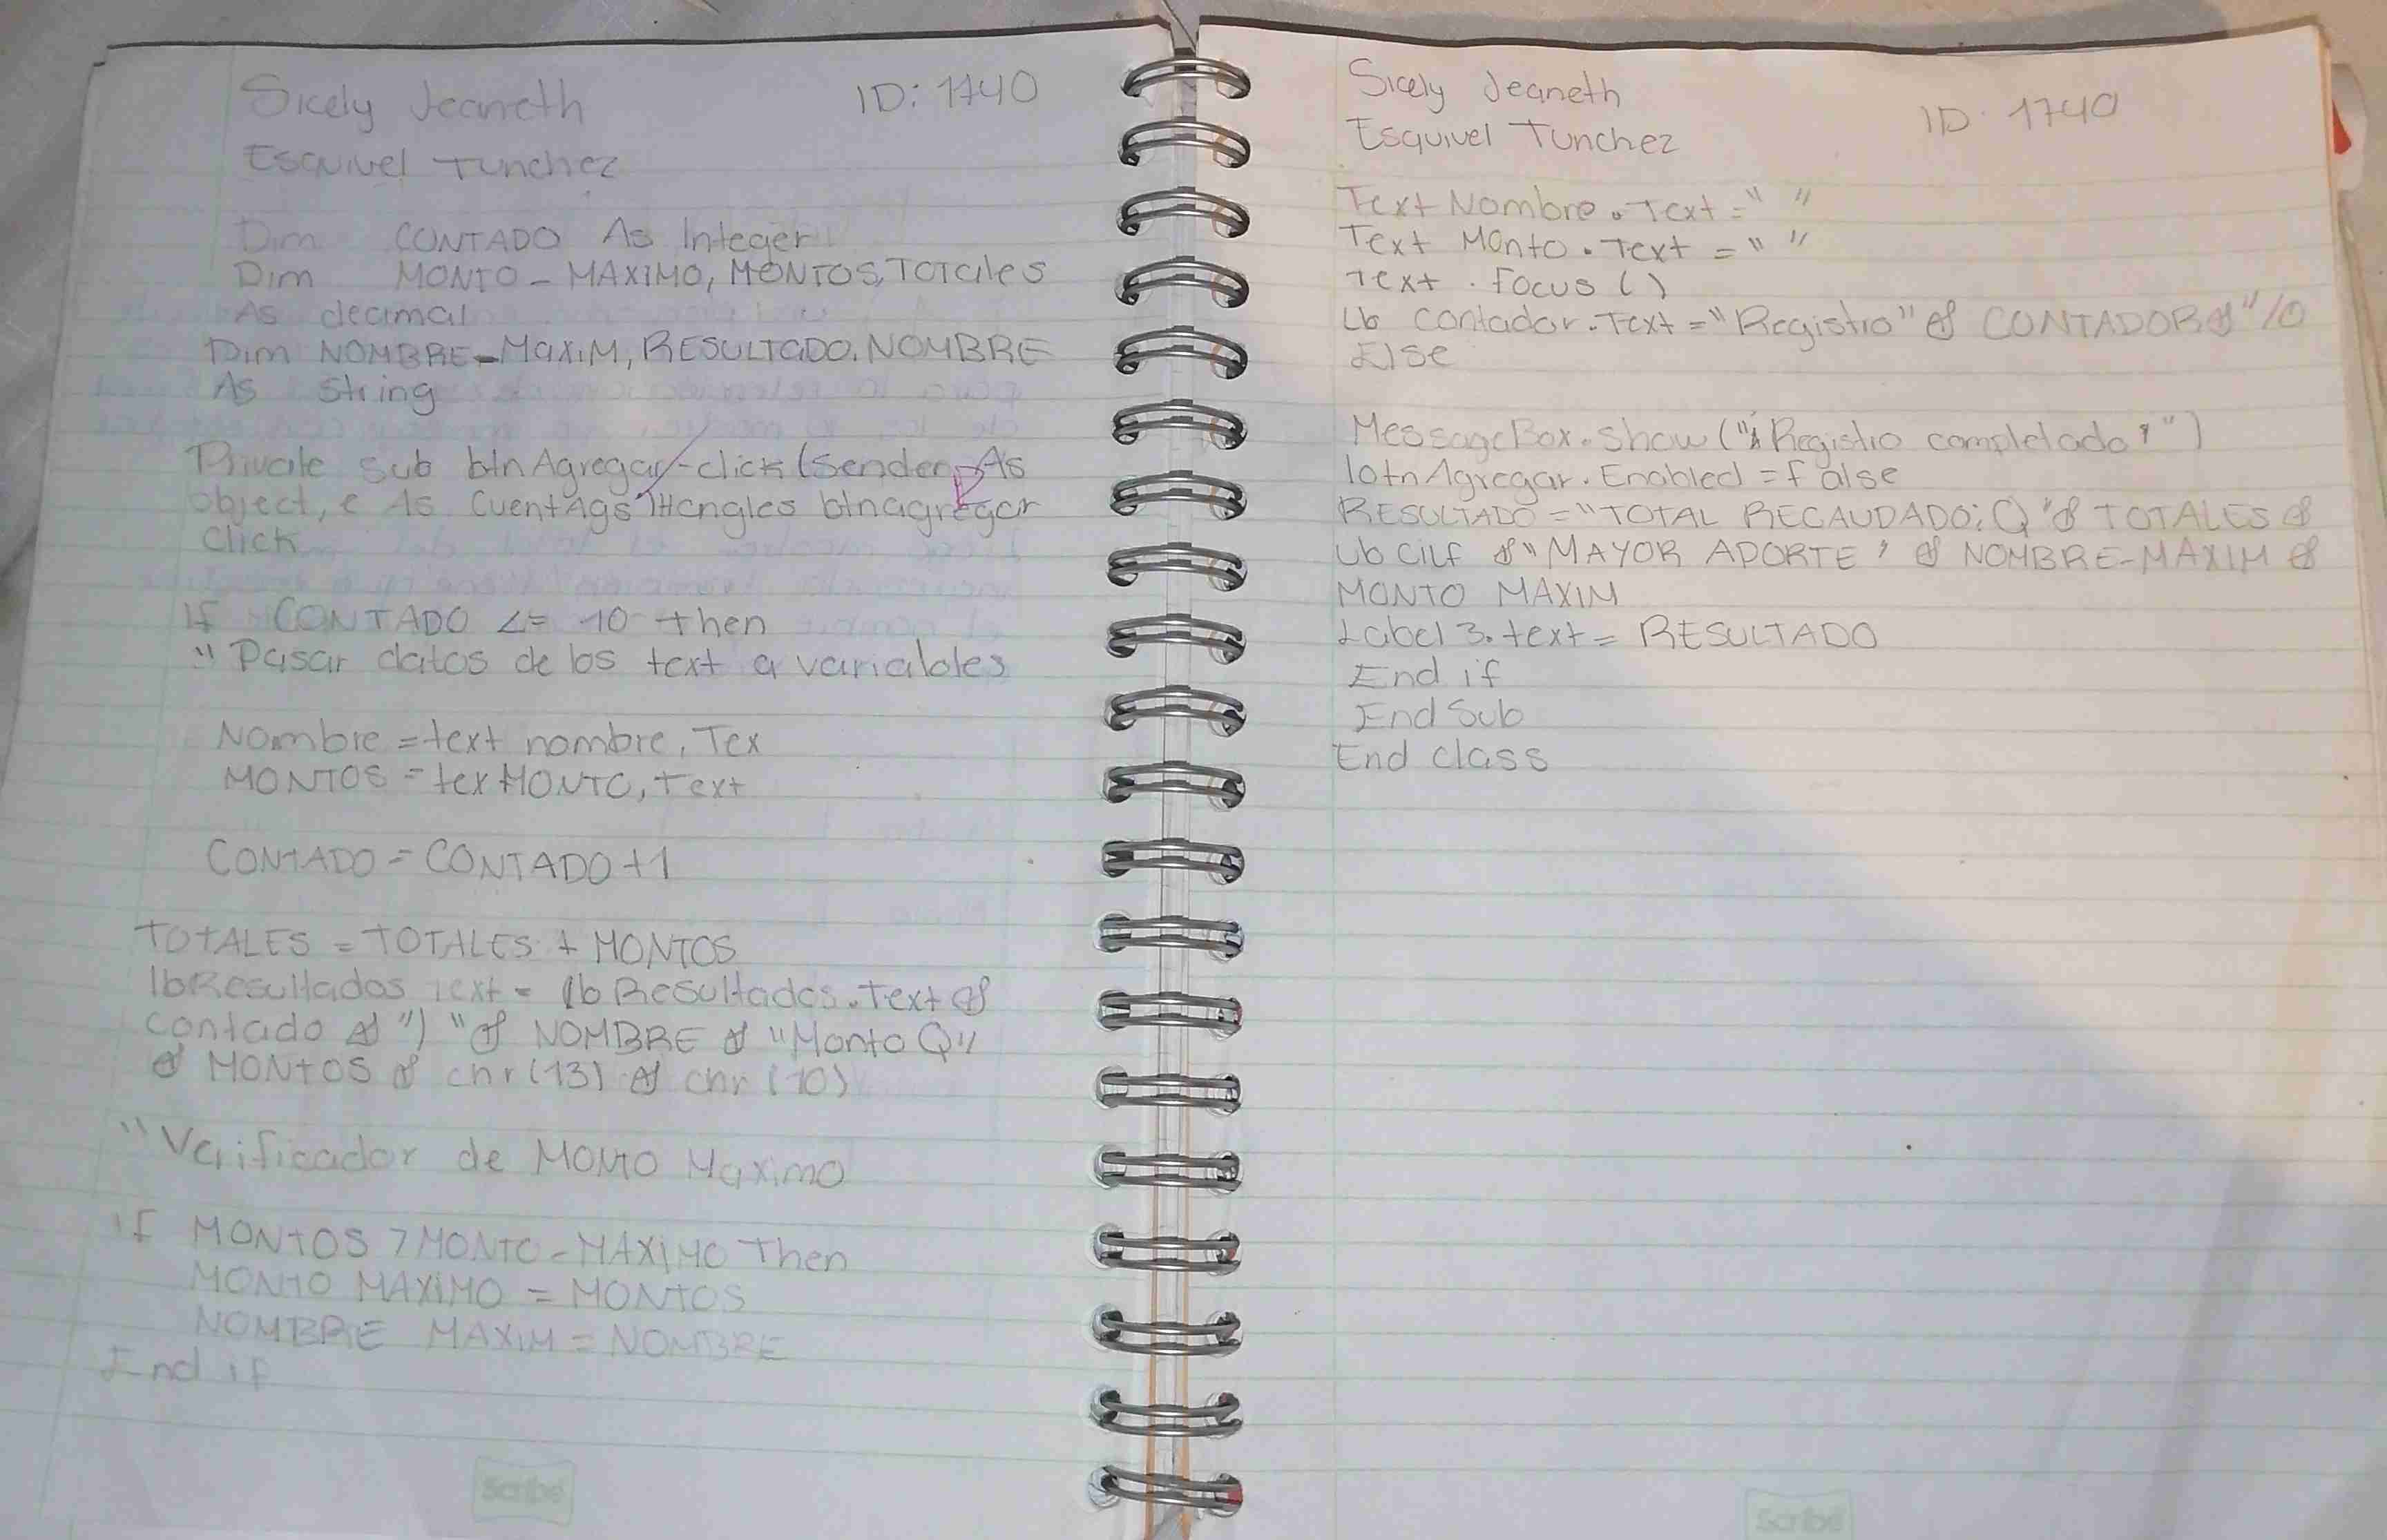 Sicely Jeaneth ID: 1740
Esquivel Tunchez
Dim CONTADO As Integer
Dim MONTO - MAXIMO, MONTOS, TOTales
As decimal
Dim NOMBRE - MaxiM, RESULTADO. NOMBRE
As string
Private sub btnAgregar - click (Sender As
object, e As CuentAgs Hangles btnagregar
Click
if CONTADO <= 10 then
" Pasar datos de los text a variables
Nombre = text nombre, Tex
MONTOS = tex MONTO, Text
CONTADO = CONTADO + 1
TOTALES = TOTALES + MONTOS
lbResultados Text = lb Resultados.Text &
contado & ") " & NOMBRE & "Monto Q"
& MONTOS & chr (13) & chr (10)
" Verificador de MONTO Maximo
if MONTOS > MONTO - MAXIMO Then
MONTO MAXIMO = MONTOS
NOMBRE MAXIM = NOMBRE
End if
Scribe
Sicely Jeaneth
Esquivel Tunchez ID. 1740
Text Nombre.Text = " "
Text Monto.Text = " "
Text . Focus ( )
Lb contador.Text = "Registro" & CONTADOR & "/0
Else
MessageBox.Show ("¡ Registro completado ! ")
btnAgregar. Enabled = false
RESULTADO = "TOTAL RECAUDADO: Q" & TOTALES &
& " MAYOR ADORTE ' & NOMBRE-MAXIM &
MONTO MAXIM
Label 3. text = RESULTADO
End if
End Sub
End class
Scribe